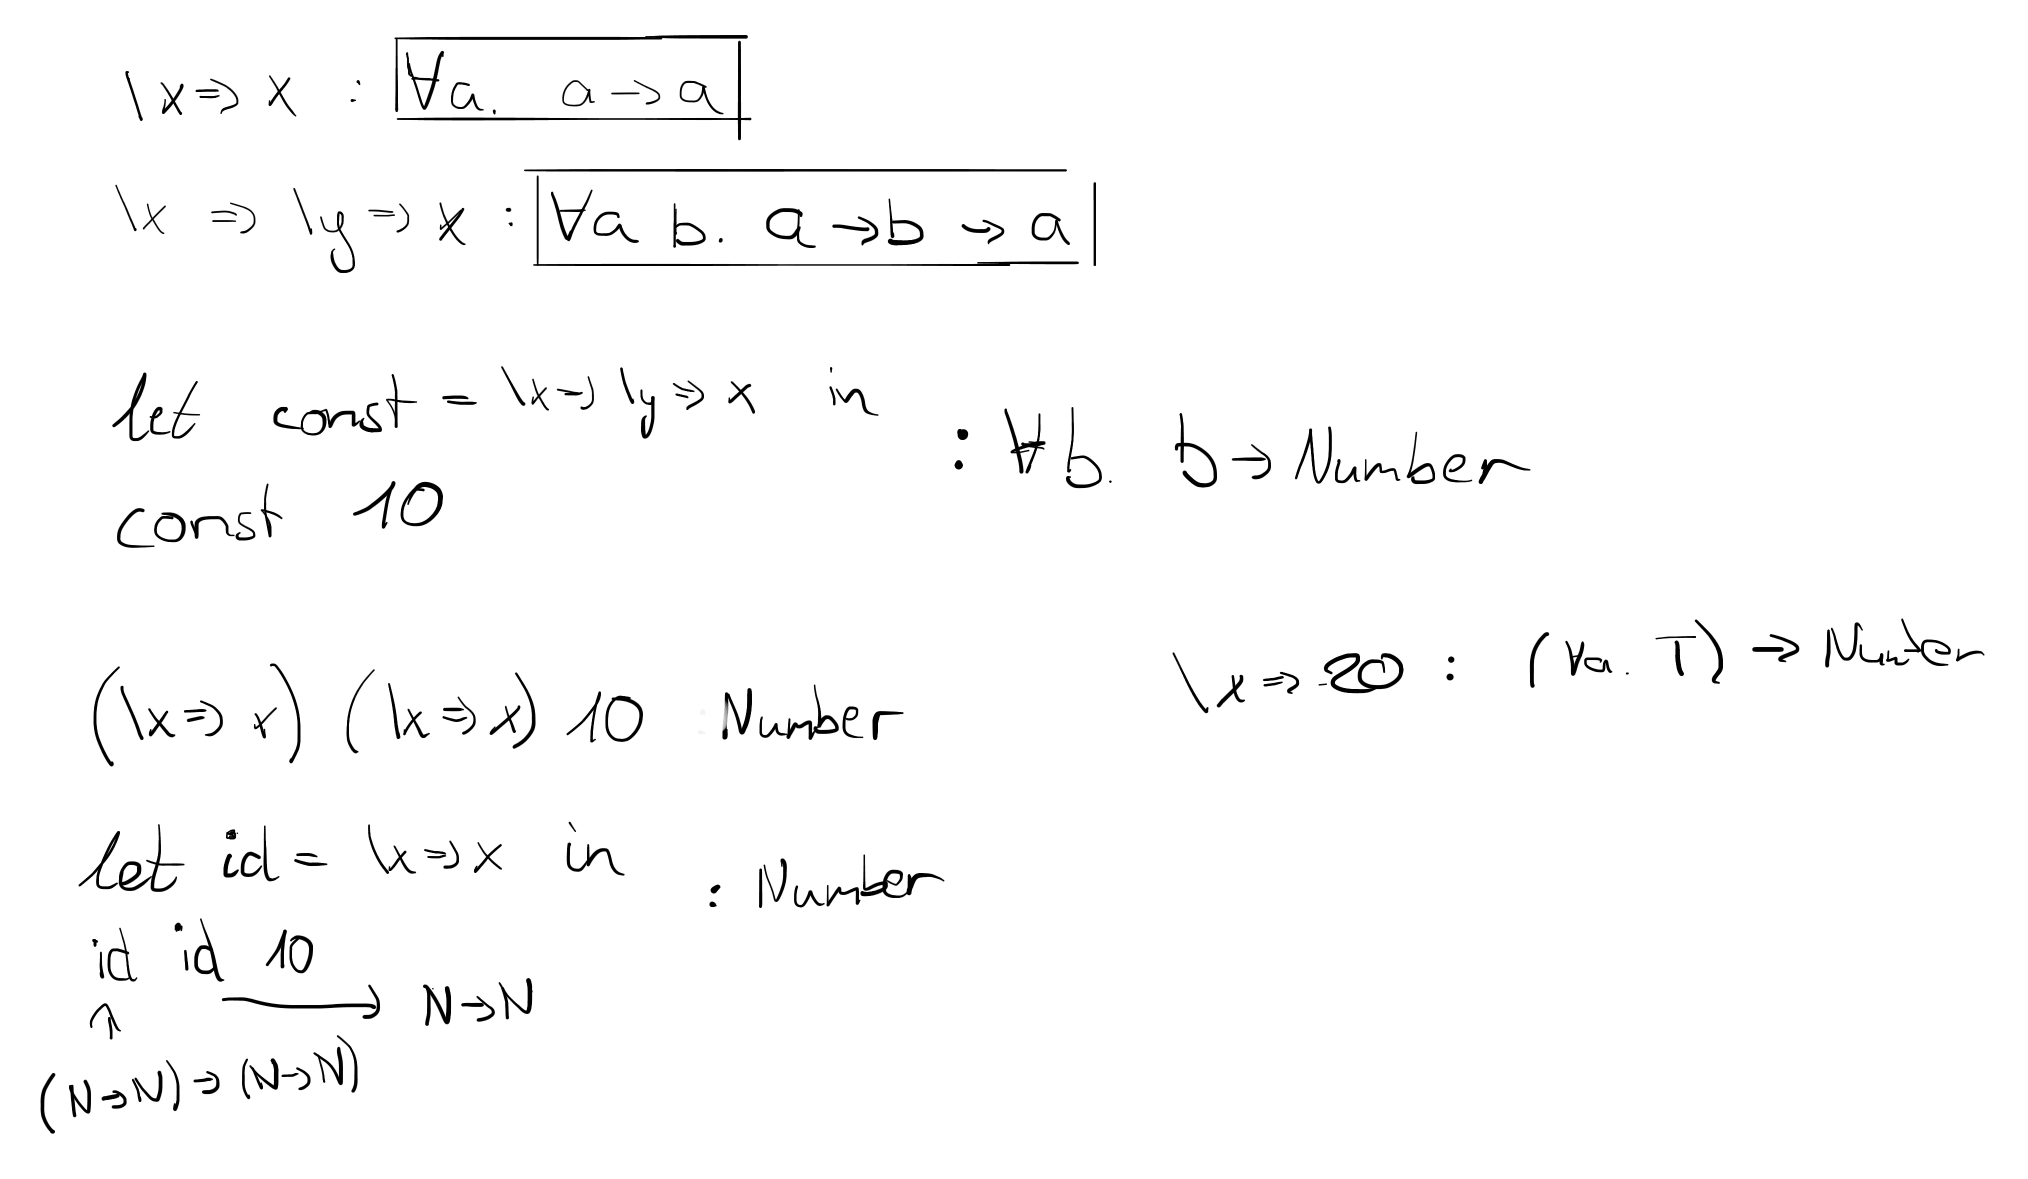 \x => x : ∀a. a → a
\x => \y => x : ∀a b. a → b → a
let const = \x => \y => x in
const 10
: ∀b. b → Number
(\x => x) (\x => x) 10 : Number
\x => 20 : (∀a. T) → Number
let id = \x => x in
id id 10
: Number
N → N
(N → N) → (N → N)